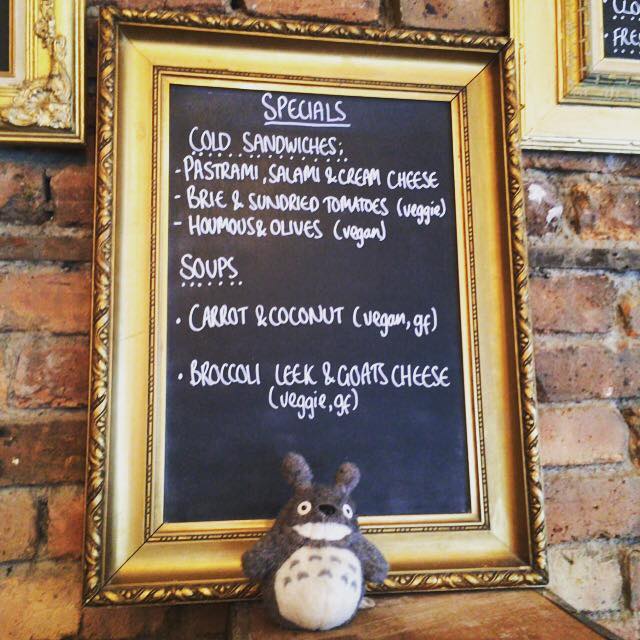 SPECIALS
COLD SANDWICHES;
- PASTRAMI, SALAMI & CREAM CHEESE
- BRIE & SUNDRIED TOMATOES (veggie)
- HOUMOUS & OLIVES (vegan)
SOUPS
• CARROT & COCONUT (vegan, gf)
• BROCCOLI LEEK & GOATS CHEESE
(veggie, gf)